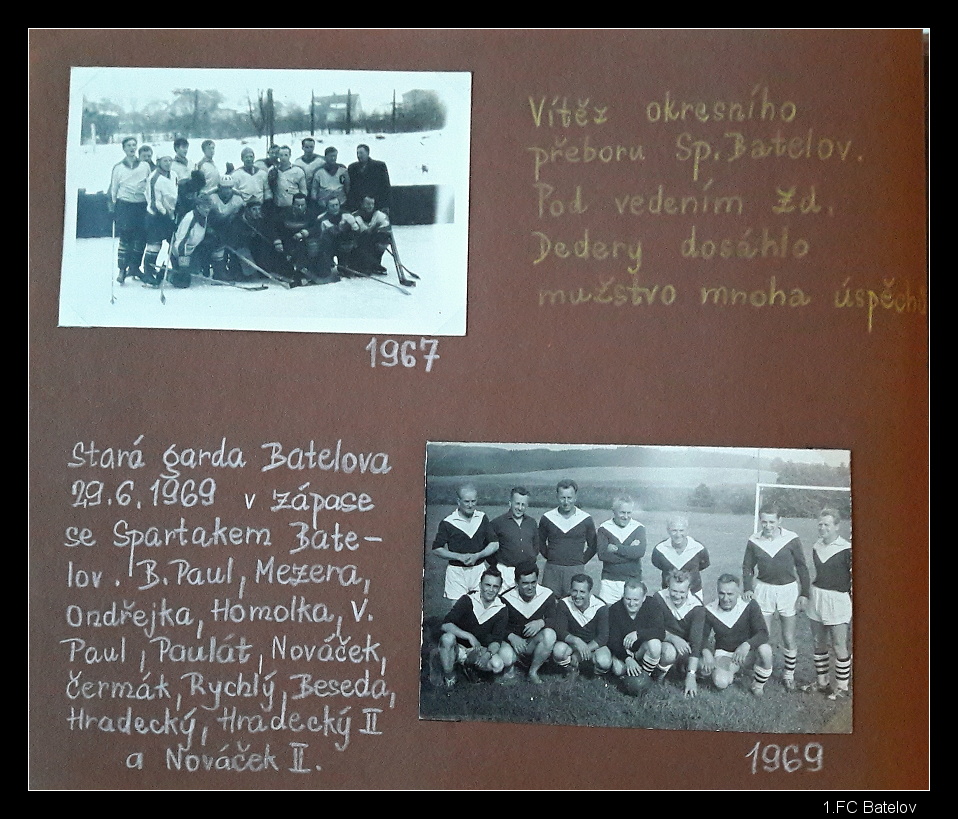 Vítěz okresního
přeboru Sp. Batelov.
Pod vedením Zd.
Dedery dosáhlo
mužstvo mnoha úspěchů
1967
Stará garda Batelova
29.6.1969 v zápase
se Spartakem Bate-
lov. B. Paul, Mezera,
Ondřejka, Homolka, V.
Paul, Paulát, Nováček,
Čermák, Rychlý, Beseda,
Hradecký, Hradecký II
a Nováček II.
1969
1.FC Batelov